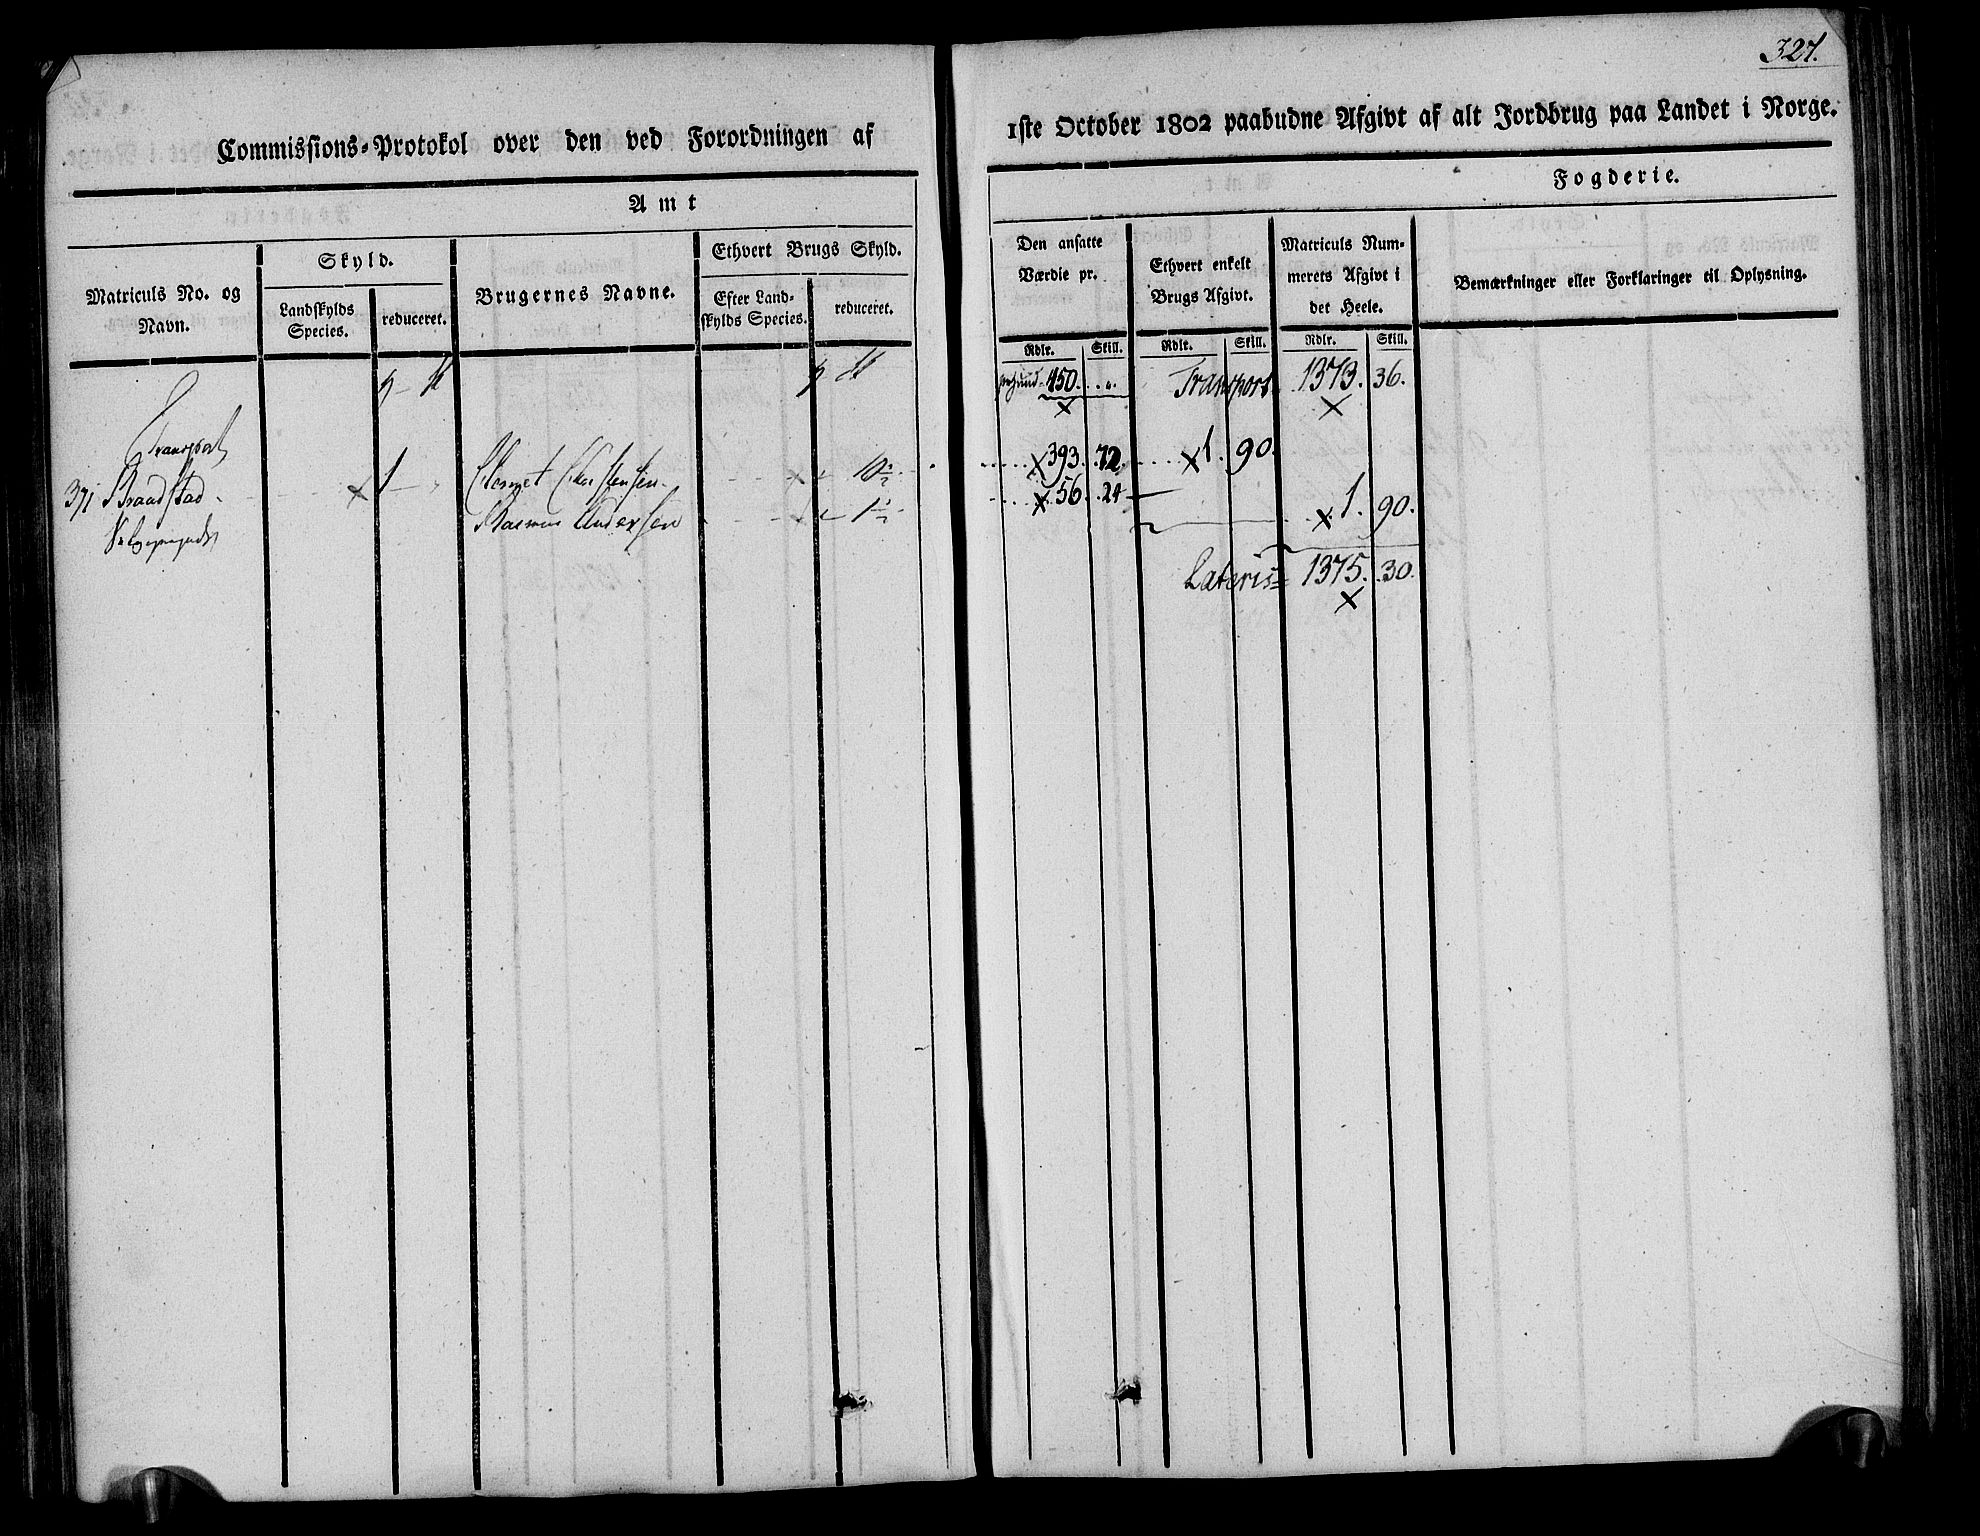 327.
Commissions-Protokol over den ved Forordningen af 1ste October 1802 paabudne Afgivt af alt Jordbrug paa Landet i Norge.
Amt
Fogderie.
Matriculs No. og Navn.
Skyld.
Landskylds Species.
reduceret.
Brugernes Navne.
Ethvert Brugs Skyld.
Efter Landskylds Species.
reduceret.
Den ansatte Værdie pr.
Ethvert enkelt Brugs Afgivt.
Matriculs Nummerets Afgivt i det Heele.
Bemærkninger eller Forklaringer til Oplysning.
Rdlr. Skill. Rdlr. Skill. Rdlr. Skill.
450. Transport 1373. 36.
Transport
371 Braadstad 1 10½ 393. 72. 1. 90.
Rasmus Andersen 1½ 56. 24 1. 90.
Lateris 1375. 30.